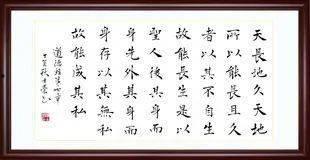 天長地久天地
所以能長且久
者以其不自生
故能長生是以
聖人後其身而
身先外其身而
身存以其無私
故能成其私
道德經第七章